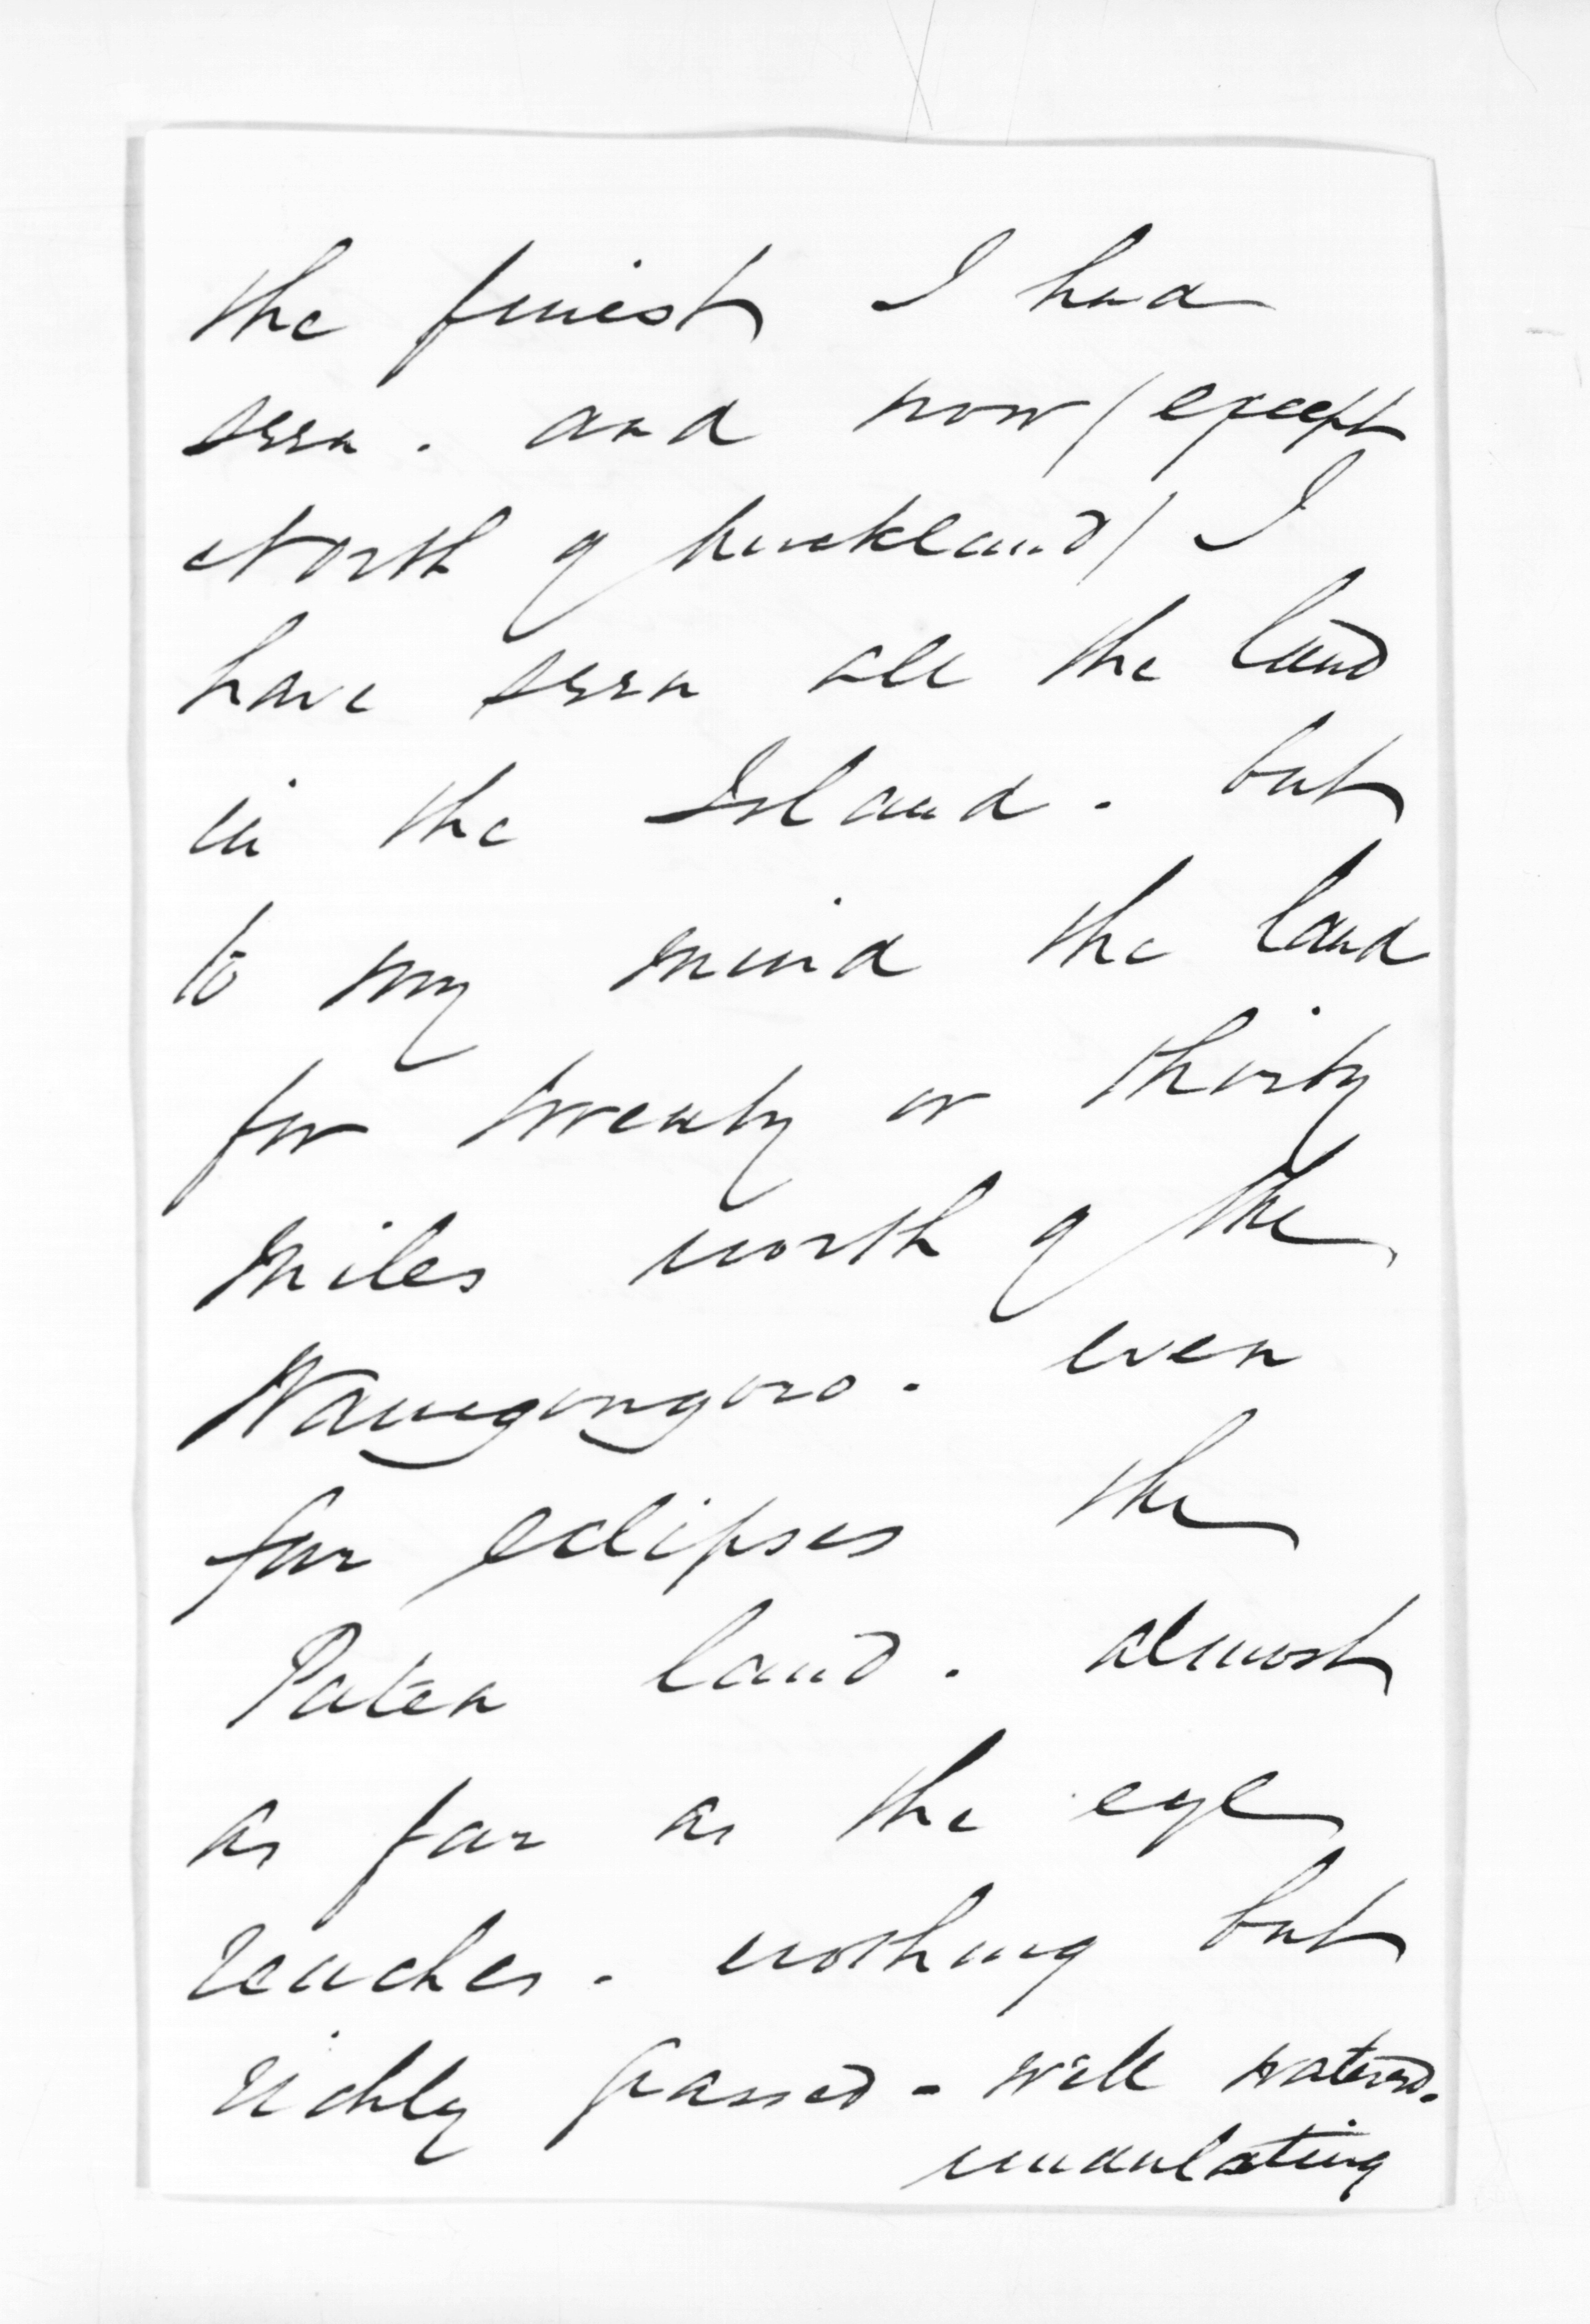 the finest I had
seen. and now (except
North of Auckland) I
have seen all the land
in the Island. but
to my mind the land
for twenty or thirty
miles north of the
Waingongoro. even
far eclipses the
Paten land. almost
as far as the eye
reaches. nothing but
richly grassed - well watered.
undulating